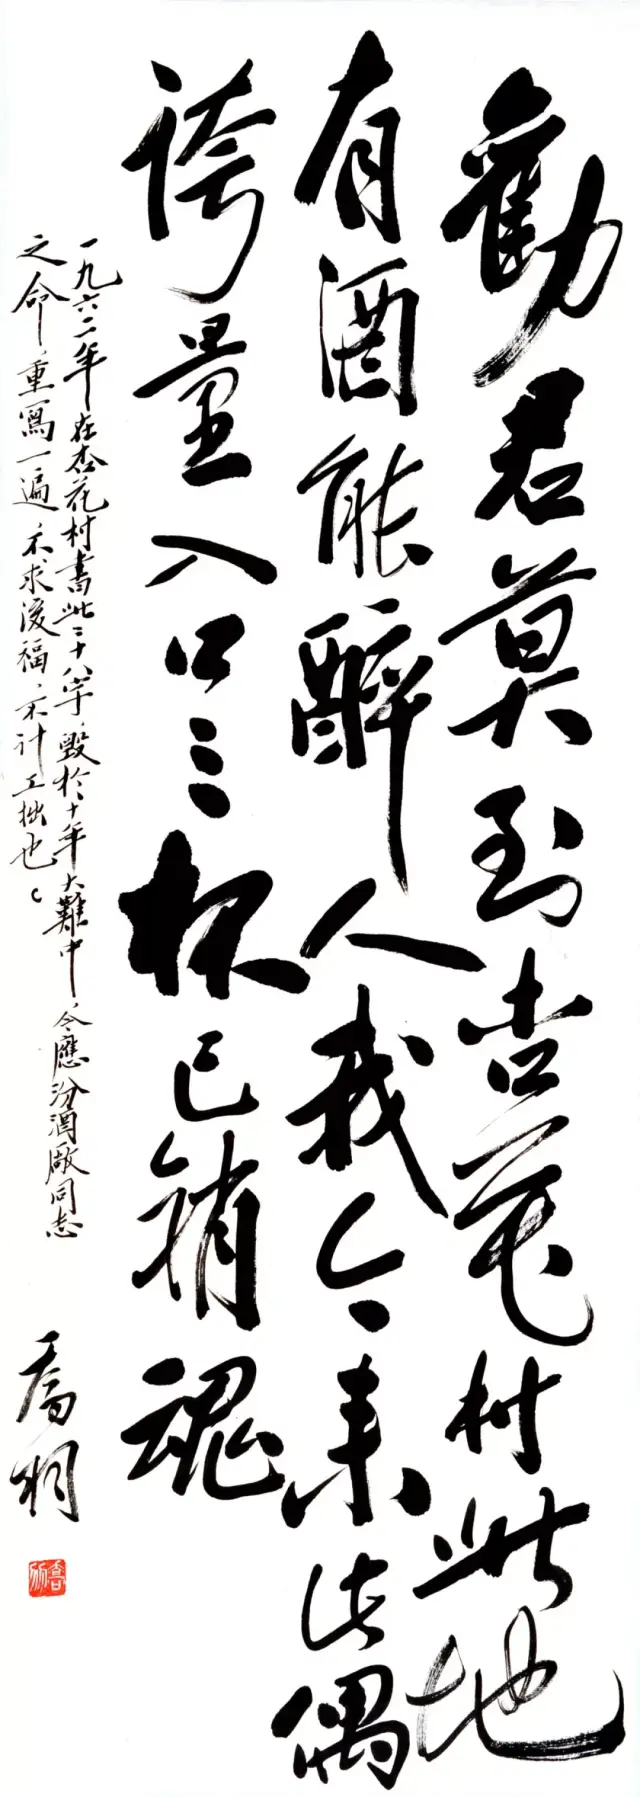 勸君莫到杏花村此地
有酒能醉人我今来此偶
誇量入口三杯已銷魂
一九六二年在杏花村書此二十八字毀於十年大難中今應汾酒廠同志
之命重寫一遍不求後福不計工拙也
喬羽
喬羽